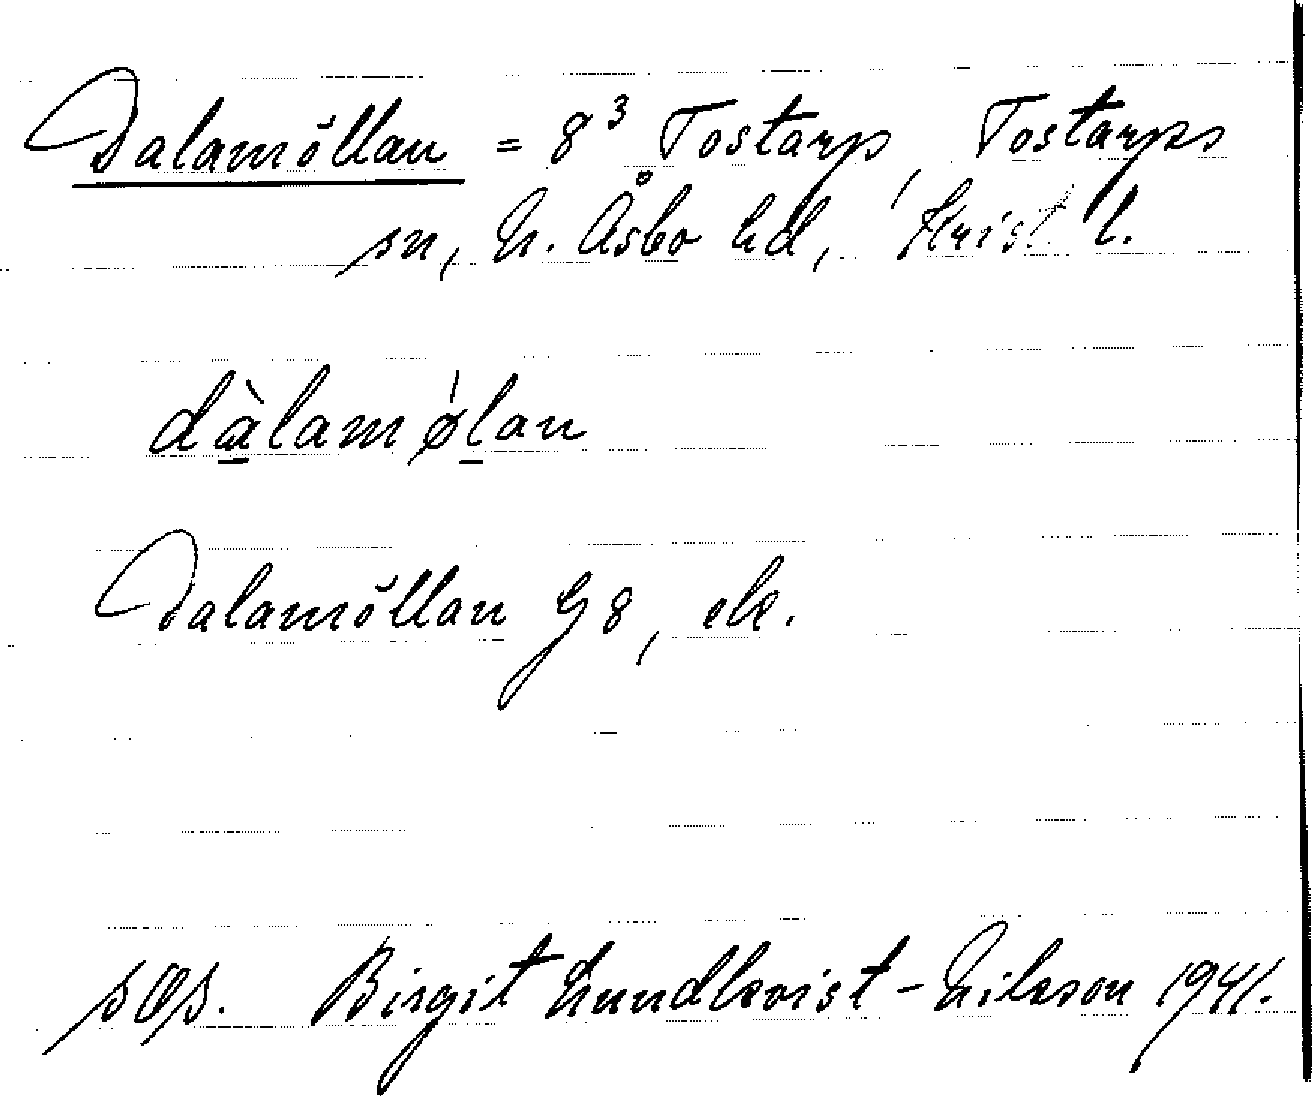 Dalamöllan = 8³ Tostarp, Tostarps
sn, N. Åsbo hd, Krist. l.
dàlamǿlan
Dalamöllan G8, ek.
Birgit Lundkvist-Nilsson 1941.